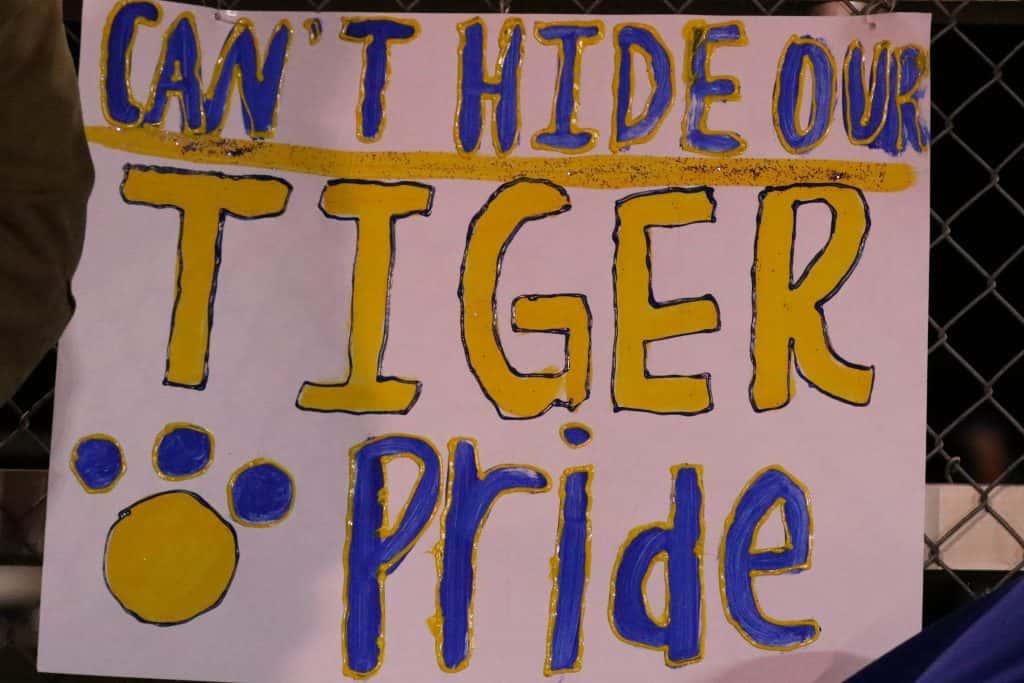 CAN'T HIDE OUR
TIGER
Pride